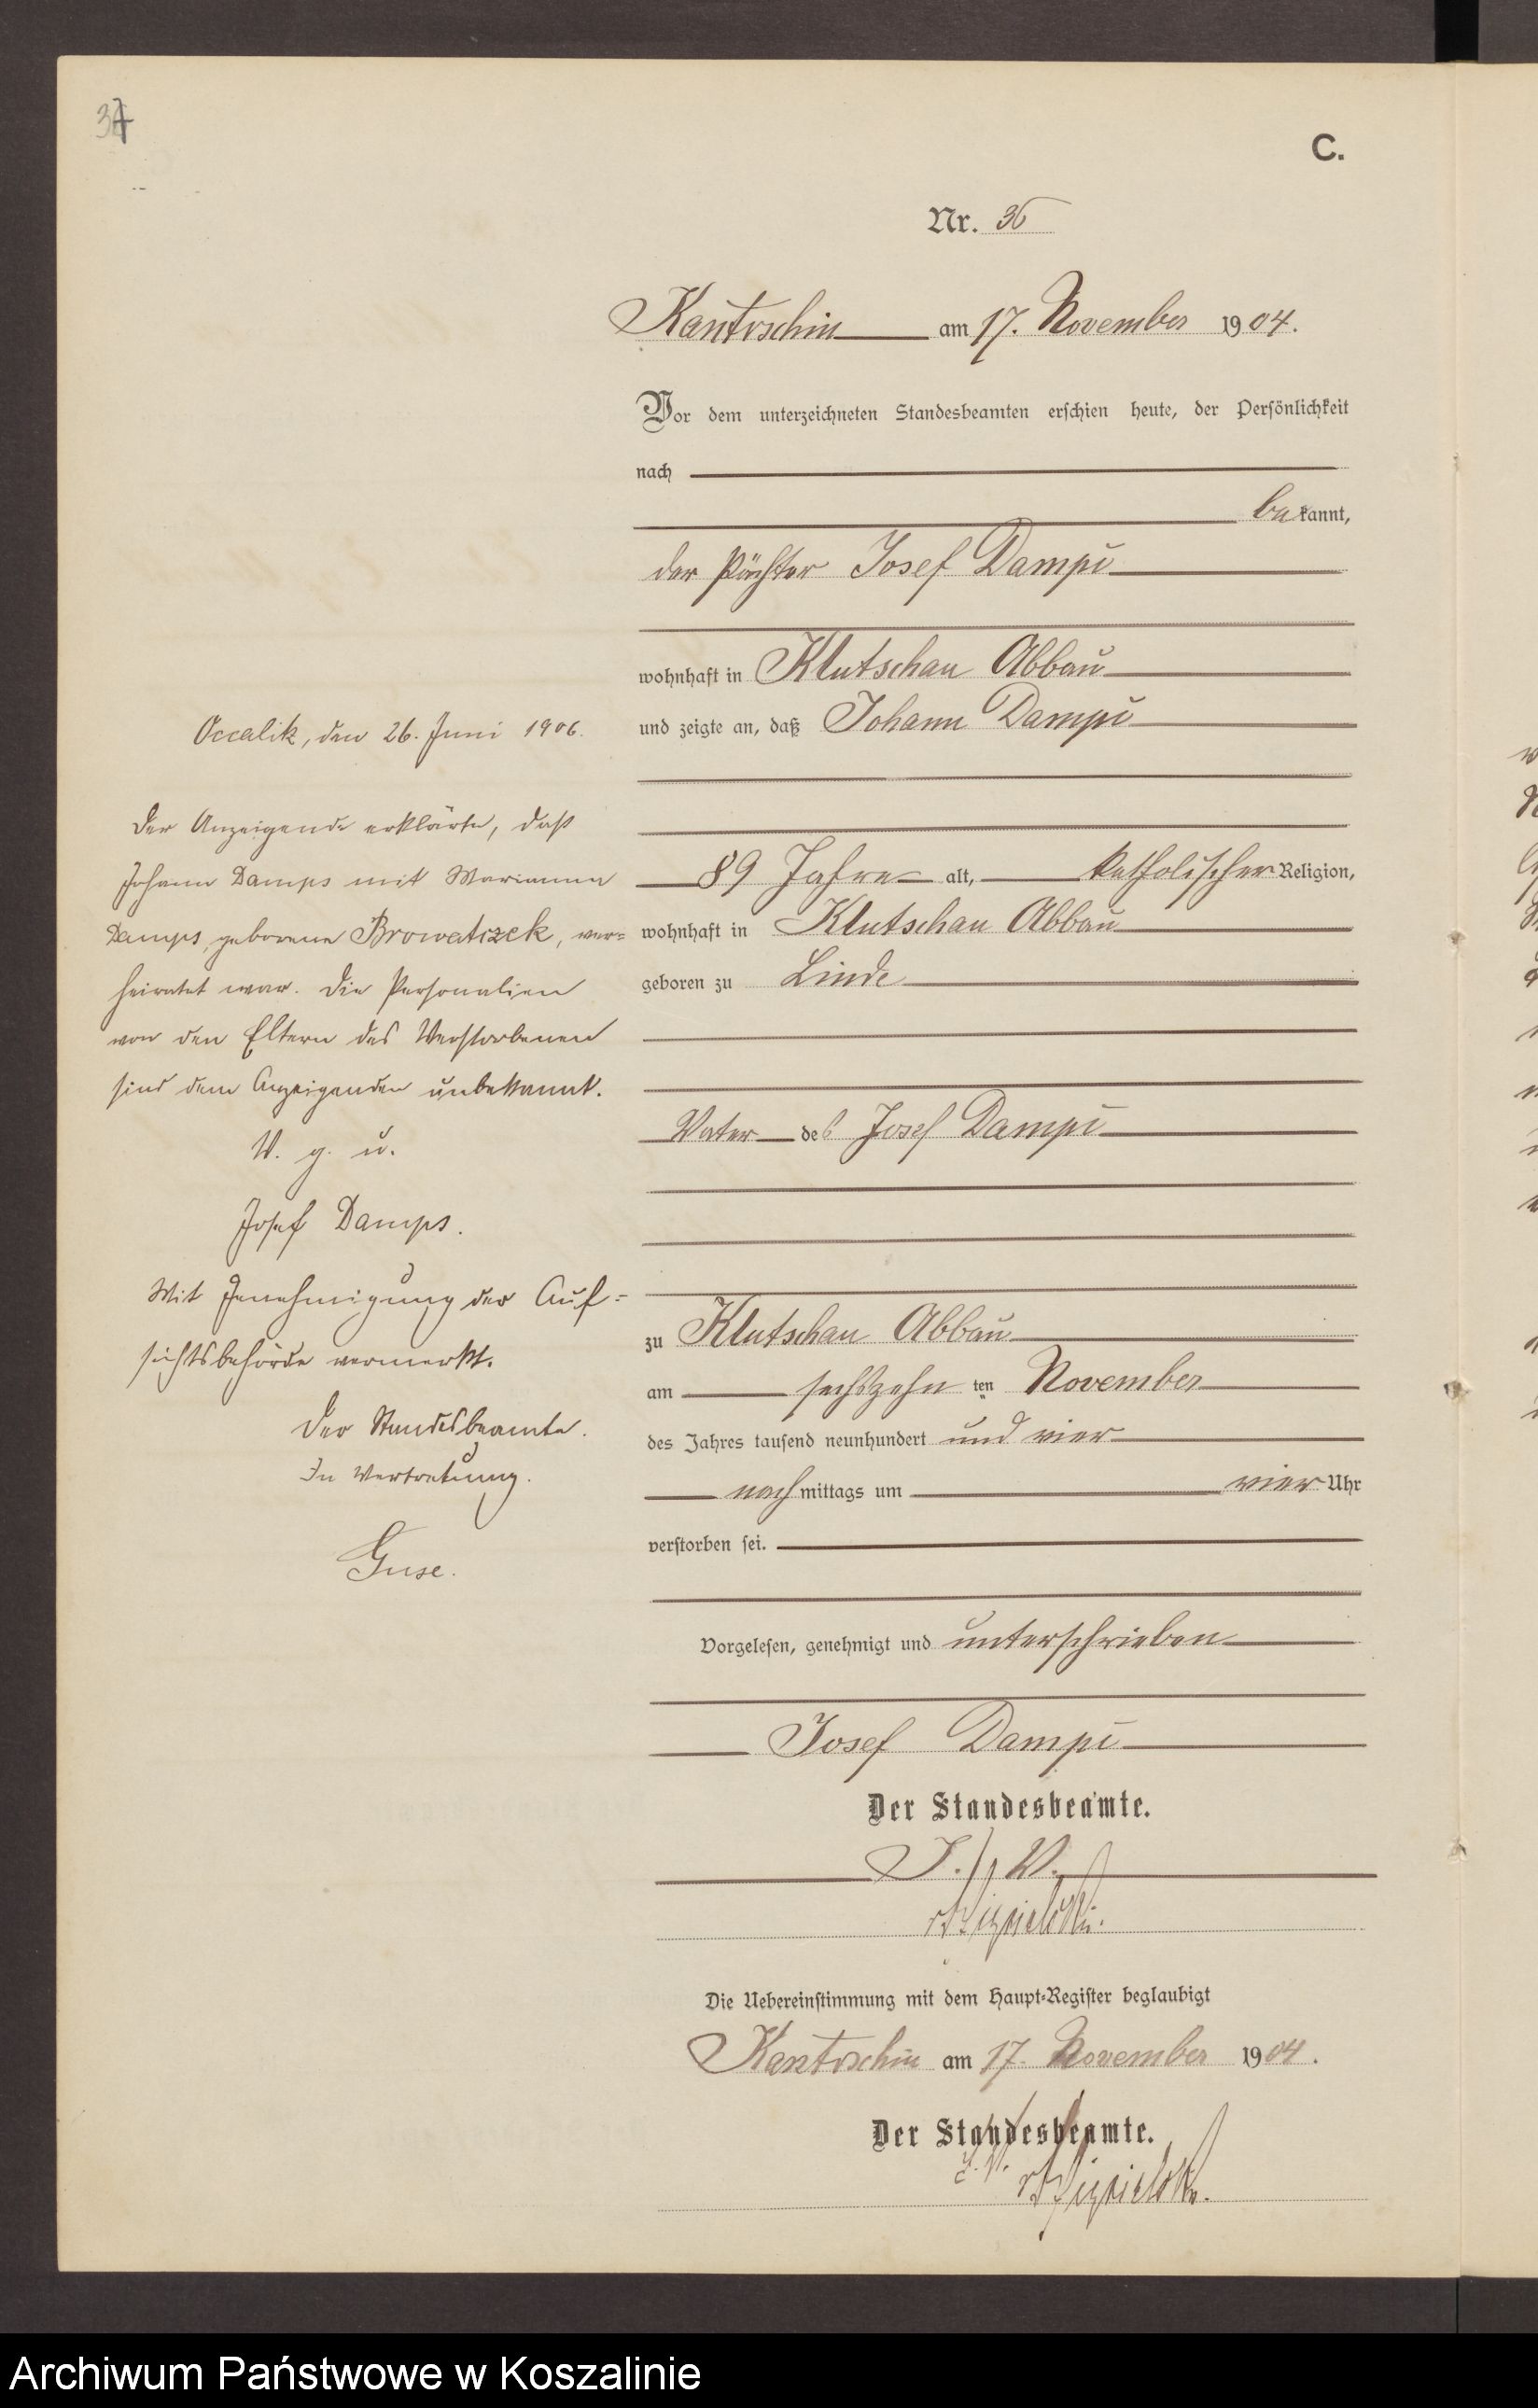 37
C.
Nr. 36
Kantrschin am 17. November 1904.
Vor dem unterzeichneten Standesbeamten erschien heute, der Persönlichkeit
nach
bekannt,
der Pächter Josef Damps
wohnhaft in Klutschau Abbau
und zeigte an, daß Johann Damps
89 Jahre alt, katholischer Religion,
wohnhaft in Klutschau Abbau
geboren zu Linde
Vater des Josef Damps
zu Klutschau Abbau
am sechszehn ten November
des Jahres tausend neunhundert und vier
nachmittags um vier Uhr
verstorben sei.
Vorgelesen, genehmigt und unterschrieben
Josef Damps
Der Standesbeamte.
J. V.
Die Uebereinstimmung mit dem Haupt-Register beglaubigt
Kantrschin am 17. November 1904.
Der Standesbeamte.
J. V.
Occalitz, den 26. Juni 1906.
Der Anzeigende erklärte, daß
Johann Damps mit Marianna
Damps, geborene Browatczek, ver=
heiratet war. Die Personalien
von den Eltern des Verstorbenen
sind dem Anzeigenden unbekannt.
V. g. u.
Josef Damps.
Mit Genehmigung der Auf=
sichtsbehörde vermerkt.
Der Standesbeamte.
In Vertretung.
Guse.
Archiwum Państwowe w Koszalinie